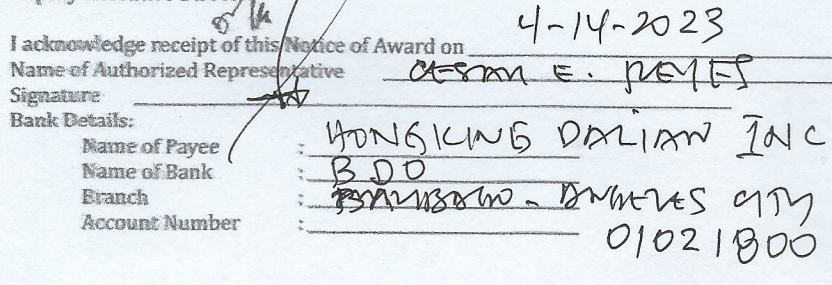 I acknowledge receipt of this Notice of Award on 4-14-2023
Name of Authorized Representative CESAR E. REYES
Signature
Bank Details:
Name of Payee : HONGKING DALIAN INC
Name of Bank : BDO
Branch : BALIBAGO - ANGELES CITY
Account Number : 01021800